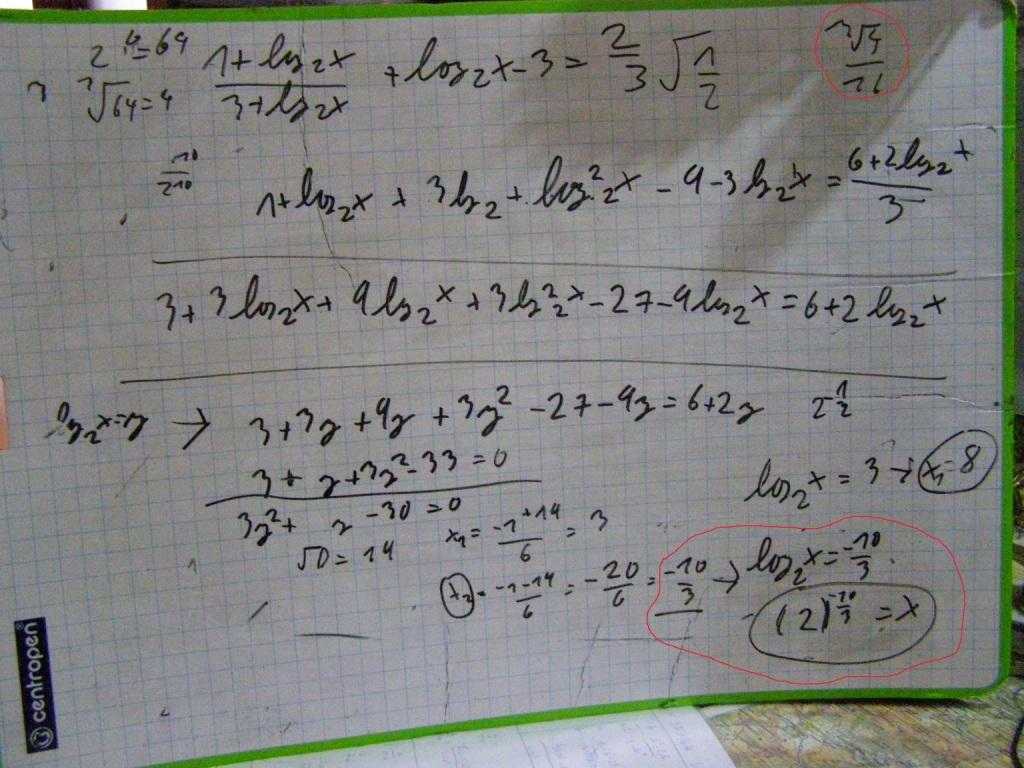 2^4=64
³√64=4
(1+log₂x)/(3+log₂x) + log₂x-3 = 2/3 √(1/2)
³√4/16
10/210
1+log₂x + 3log₂ + log²₂x - 9-3log₂x = (6+2log₂x)/3
3+3log₂x+9log₂x+3log²₂x-27-9log₂x=6+2log₂x
log₂x=y → 3+3y+9y+3y²-27-9y=6+2y
3+y+3y²-33=0
3y²+ y-30=0
√D=14
x₁=(-1+14)/6=3
x₂=(-1-14)/6=-20/6=-10/3 → log₂x=-10/3
(2)^(-10/3)=x
log₂x=3→x₁=8
centropen